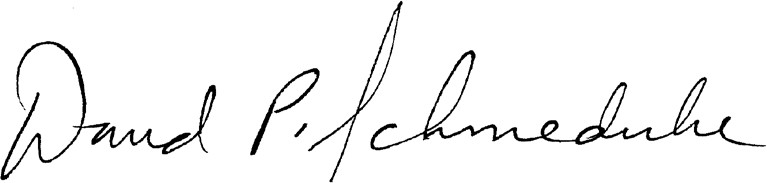 David P. Schmeduke